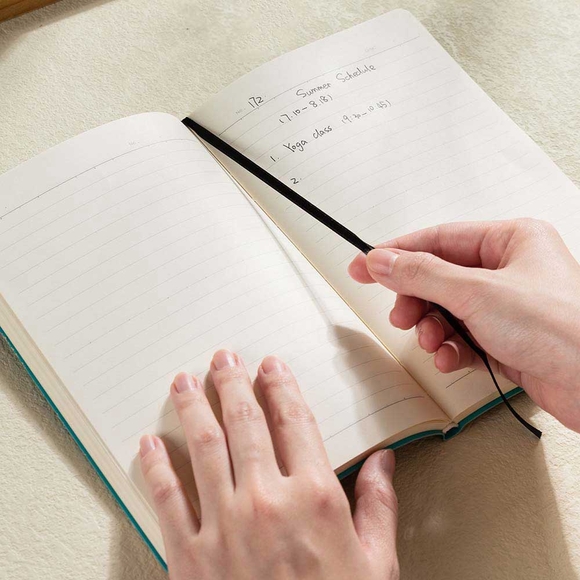 172 Summer Schedule
(7.10-8.18)
1. Yoga class (9.30-10.45)
2.